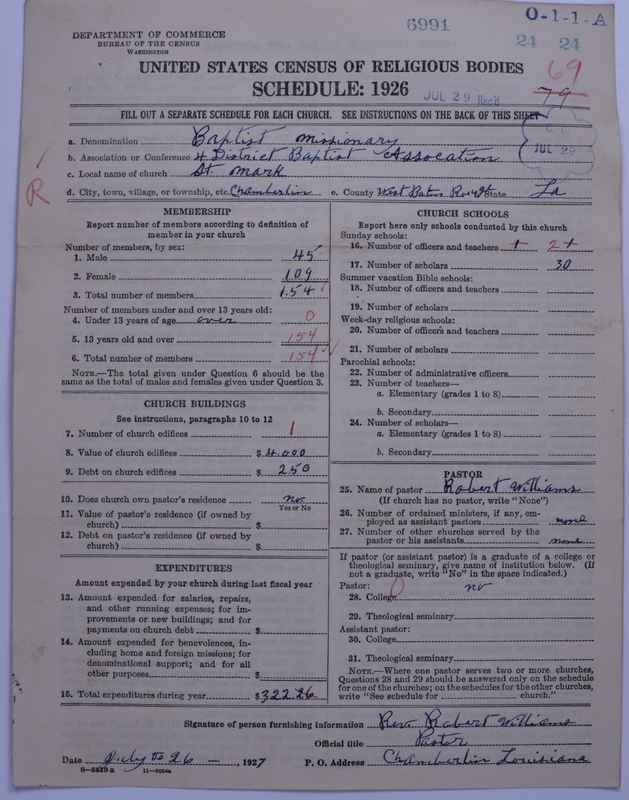 6991
O-1-1-A
DEPARTMENT OF COMMERCE
BUREAU OF THE CENSUS
WASHINGTON
24 24
UNITED STATES CENSUS OF RELIGIOUS BODIES
69
SCHEDULE: 1926
JUL 29 Rec'd
79
FILL OUT A SEPARATE SCHEDULE FOR EACH CHURCH. SEE INSTRUCTIONS ON THE BACK OF THIS SHEET
a. Denomination Baptist missionary
b. Association or Conference 4 District Baptist Assocation
JUL 29
c. Local name of church St. mark
R
d. City, town, village, or township, etc. Chamberlin e. County West Baton Rouge State La
MEMBERSHIP
Report number of members according to definition of
member in your church
Number of members, by sex:
1. Male 45
2. Female 109
3. Total number of members 154
Number of members under and over 13 years old:
4. Under 13 years of age over 0
5. 13 years old and over 154
6. Total number of members 154
NOTE.—The total given under Question 6 should be the
same as the total of males and females given under Question 3.
CHURCH BUILDINGS
See instructions, paragraphs 10 to 12
7. Number of church edifices 1
8. Value of church edifices $4.000
9. Debt on church edifices $ 250
10. Does church own pastor's residence no
Yes or No
11. Value of pastor's residence (if owned by
church) $
12. Debt on pastor's residence (if owned by
church) $
EXPENDITURES
Amount expended by your church during last fiscal year
13. Amount expended for salaries, repairs,
and other running expenses; for im-
provements or new buildings; and for
payments on church debt $
14. Amount expended for benevolences, in-
cluding home and foreign missions; for
denominational support; and for all
other purposes $
15. Total expenditures during year $322.26
CHURCH SCHOOLS
Report here only schools conducted by this church
Sunday schools:
16. Number of officers and teachers + 2+
17. Number of scholars 30
Summer vacation Bible schools:
18. Number of officers and teachers
19. Number of scholars
Week-day religious schools:
20. Number of officers and teachers
21. Number of scholars
Parochial schools:
22. Number of administrative officers
23. Number of teachers—
a. Elementary (grades 1 to 8)
b. Secondary
24. Number of scholars—
a. Elementary (grades 1 to 8)
b. Secondary
PASTOR
25. Name of pastor Robert Williams
(If church has no pastor, write "None")
26. Number of ordained ministers, if any, em-
ployed as assistant pastors none
27. Number of other churches served by the
pastor or his assistants none
If pastor (or assistant pastor) is a graduate of a college or
theological seminary, give name of institution below. (If
not a graduate, write "No" in the space indicated.)
Pastor: no
28. College 0
29. Theological seminary
Assistant pastor:
30. College
31. Theological seminary
NOTE.—Where one pastor serves two or more churches,
Questions 28 and 29 should be answered only on the schedule
for one of the churches; on the schedules for the other churches,
write "See schedule for church."
Signature of person furnishing information Rev. Robert Williams
Official title Pastor
Date July the 26 — , 1927 P. O. Address Chamberlin Louisiana